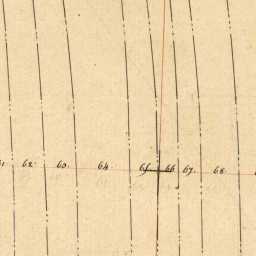 62 60 64 65 66 67 68